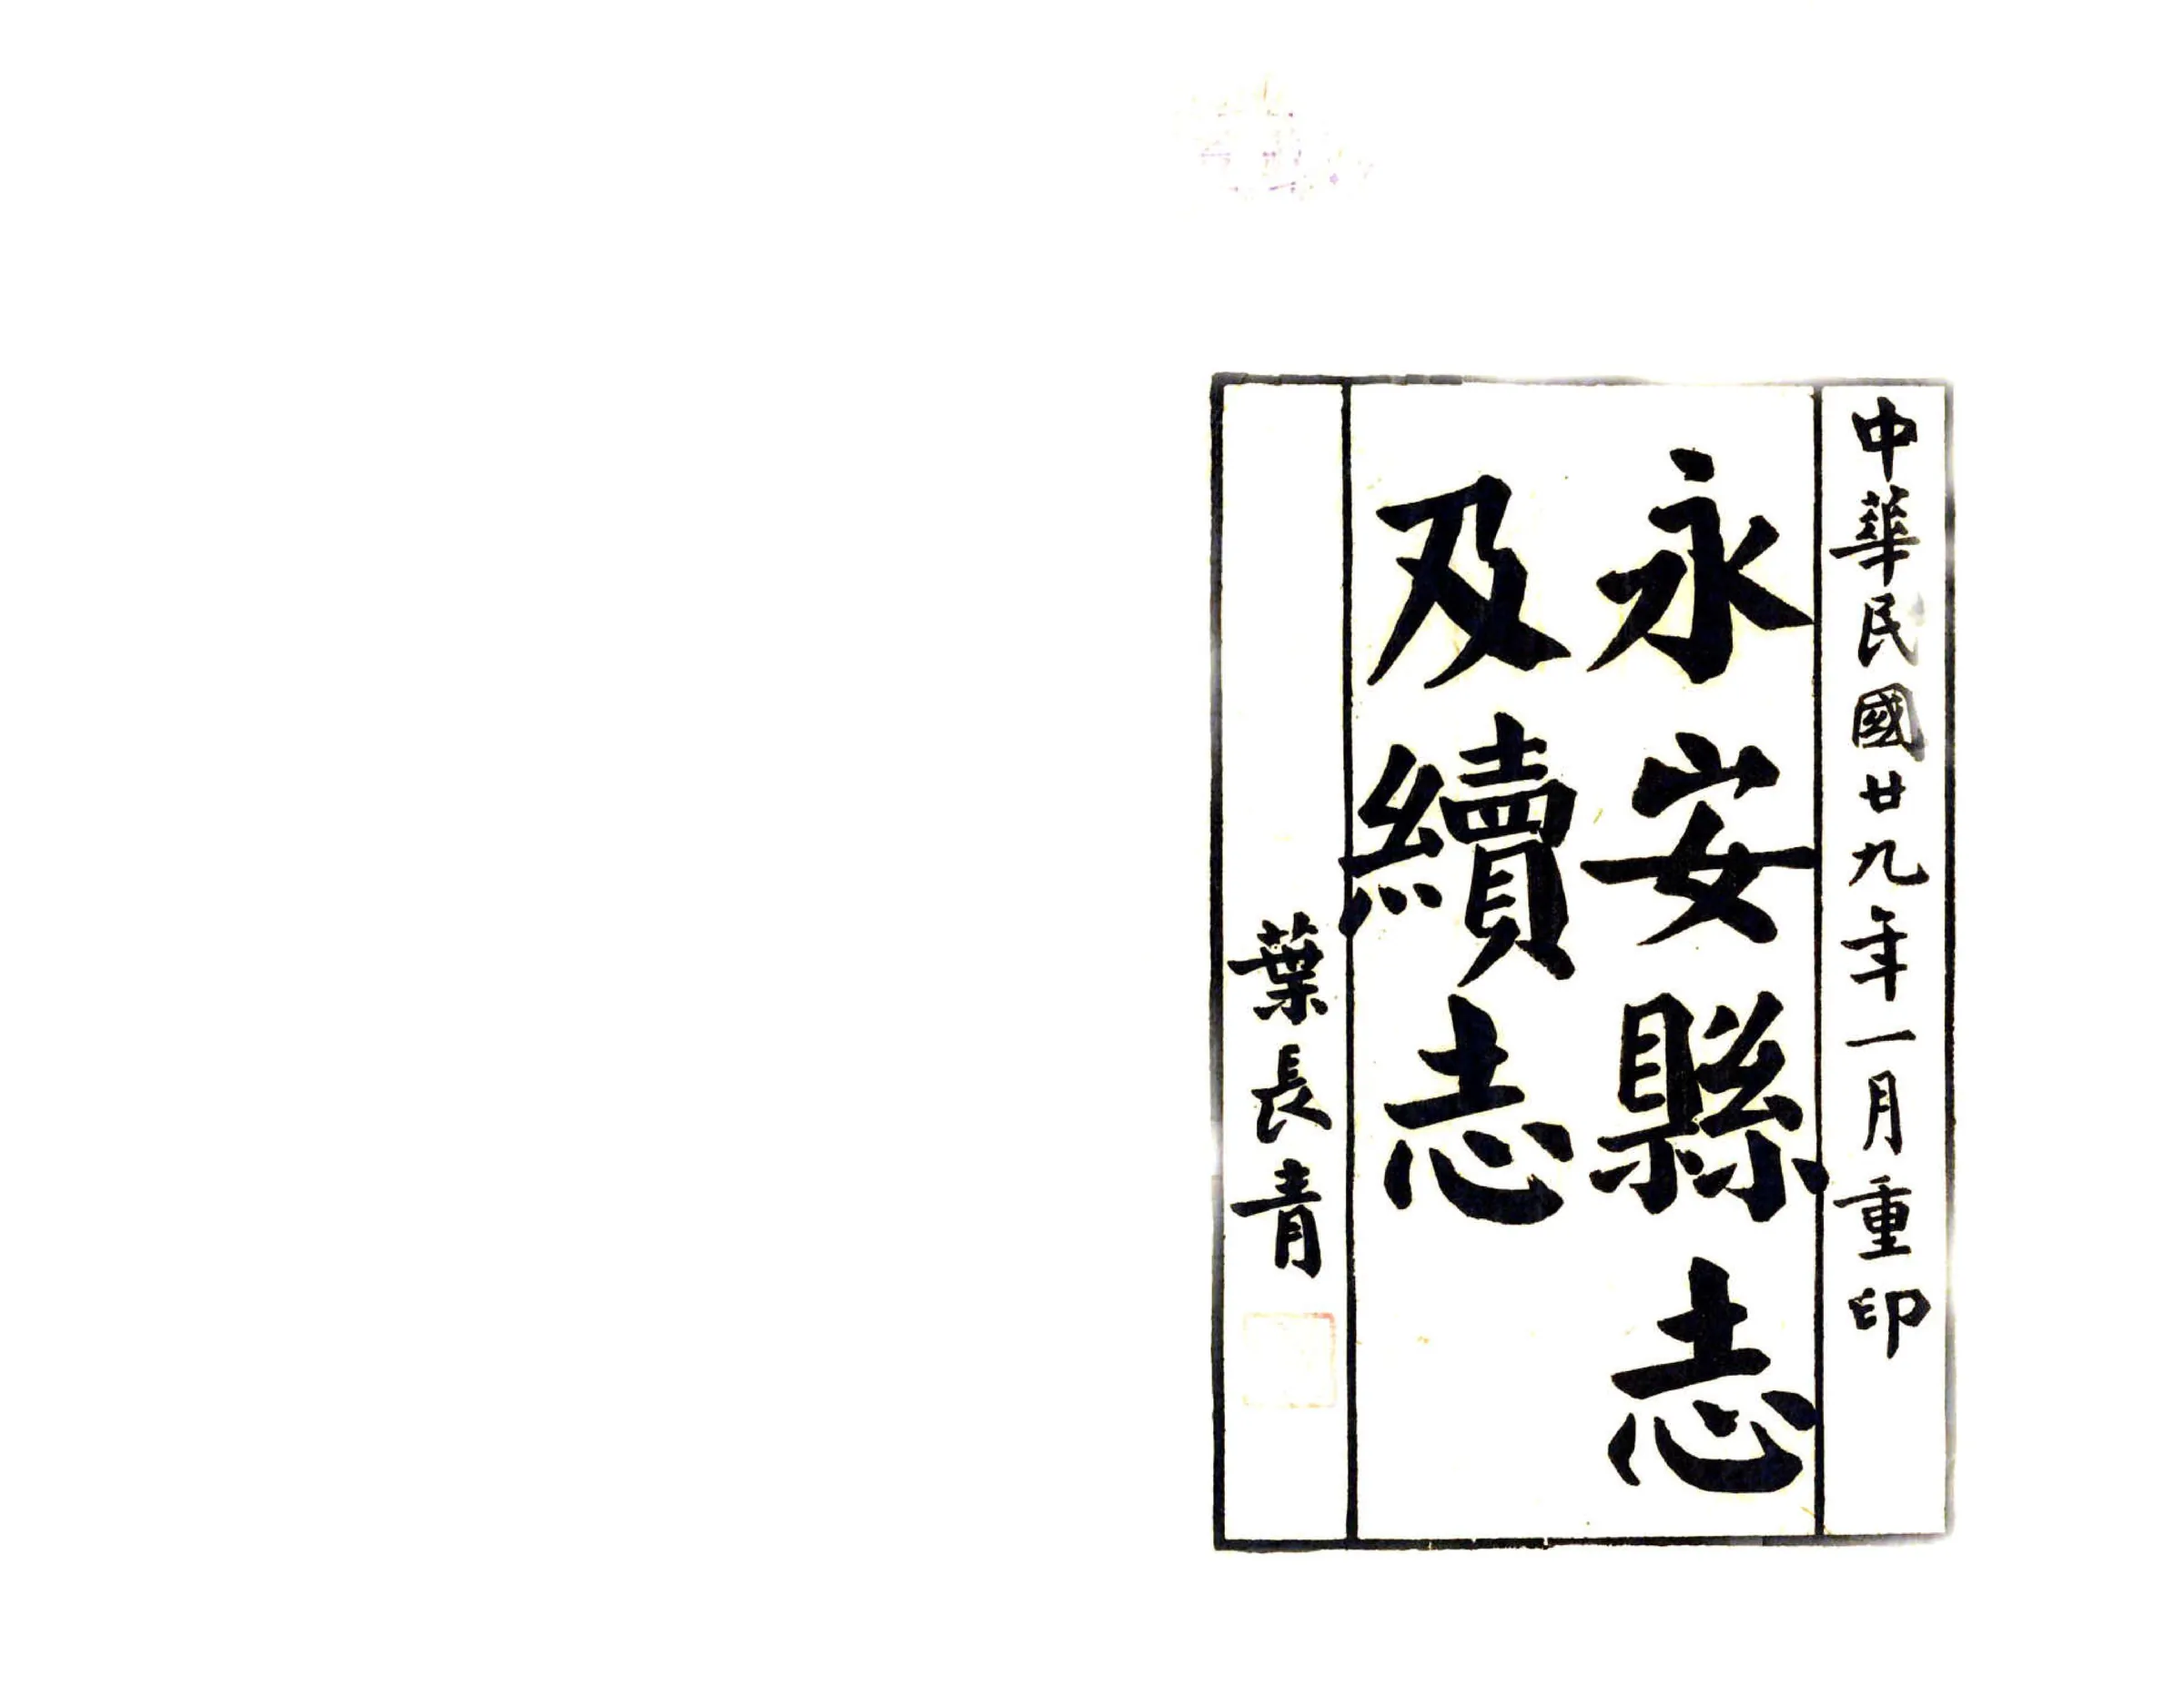 中華民國廿九年一月重印
永安縣志
及續志
葉長青